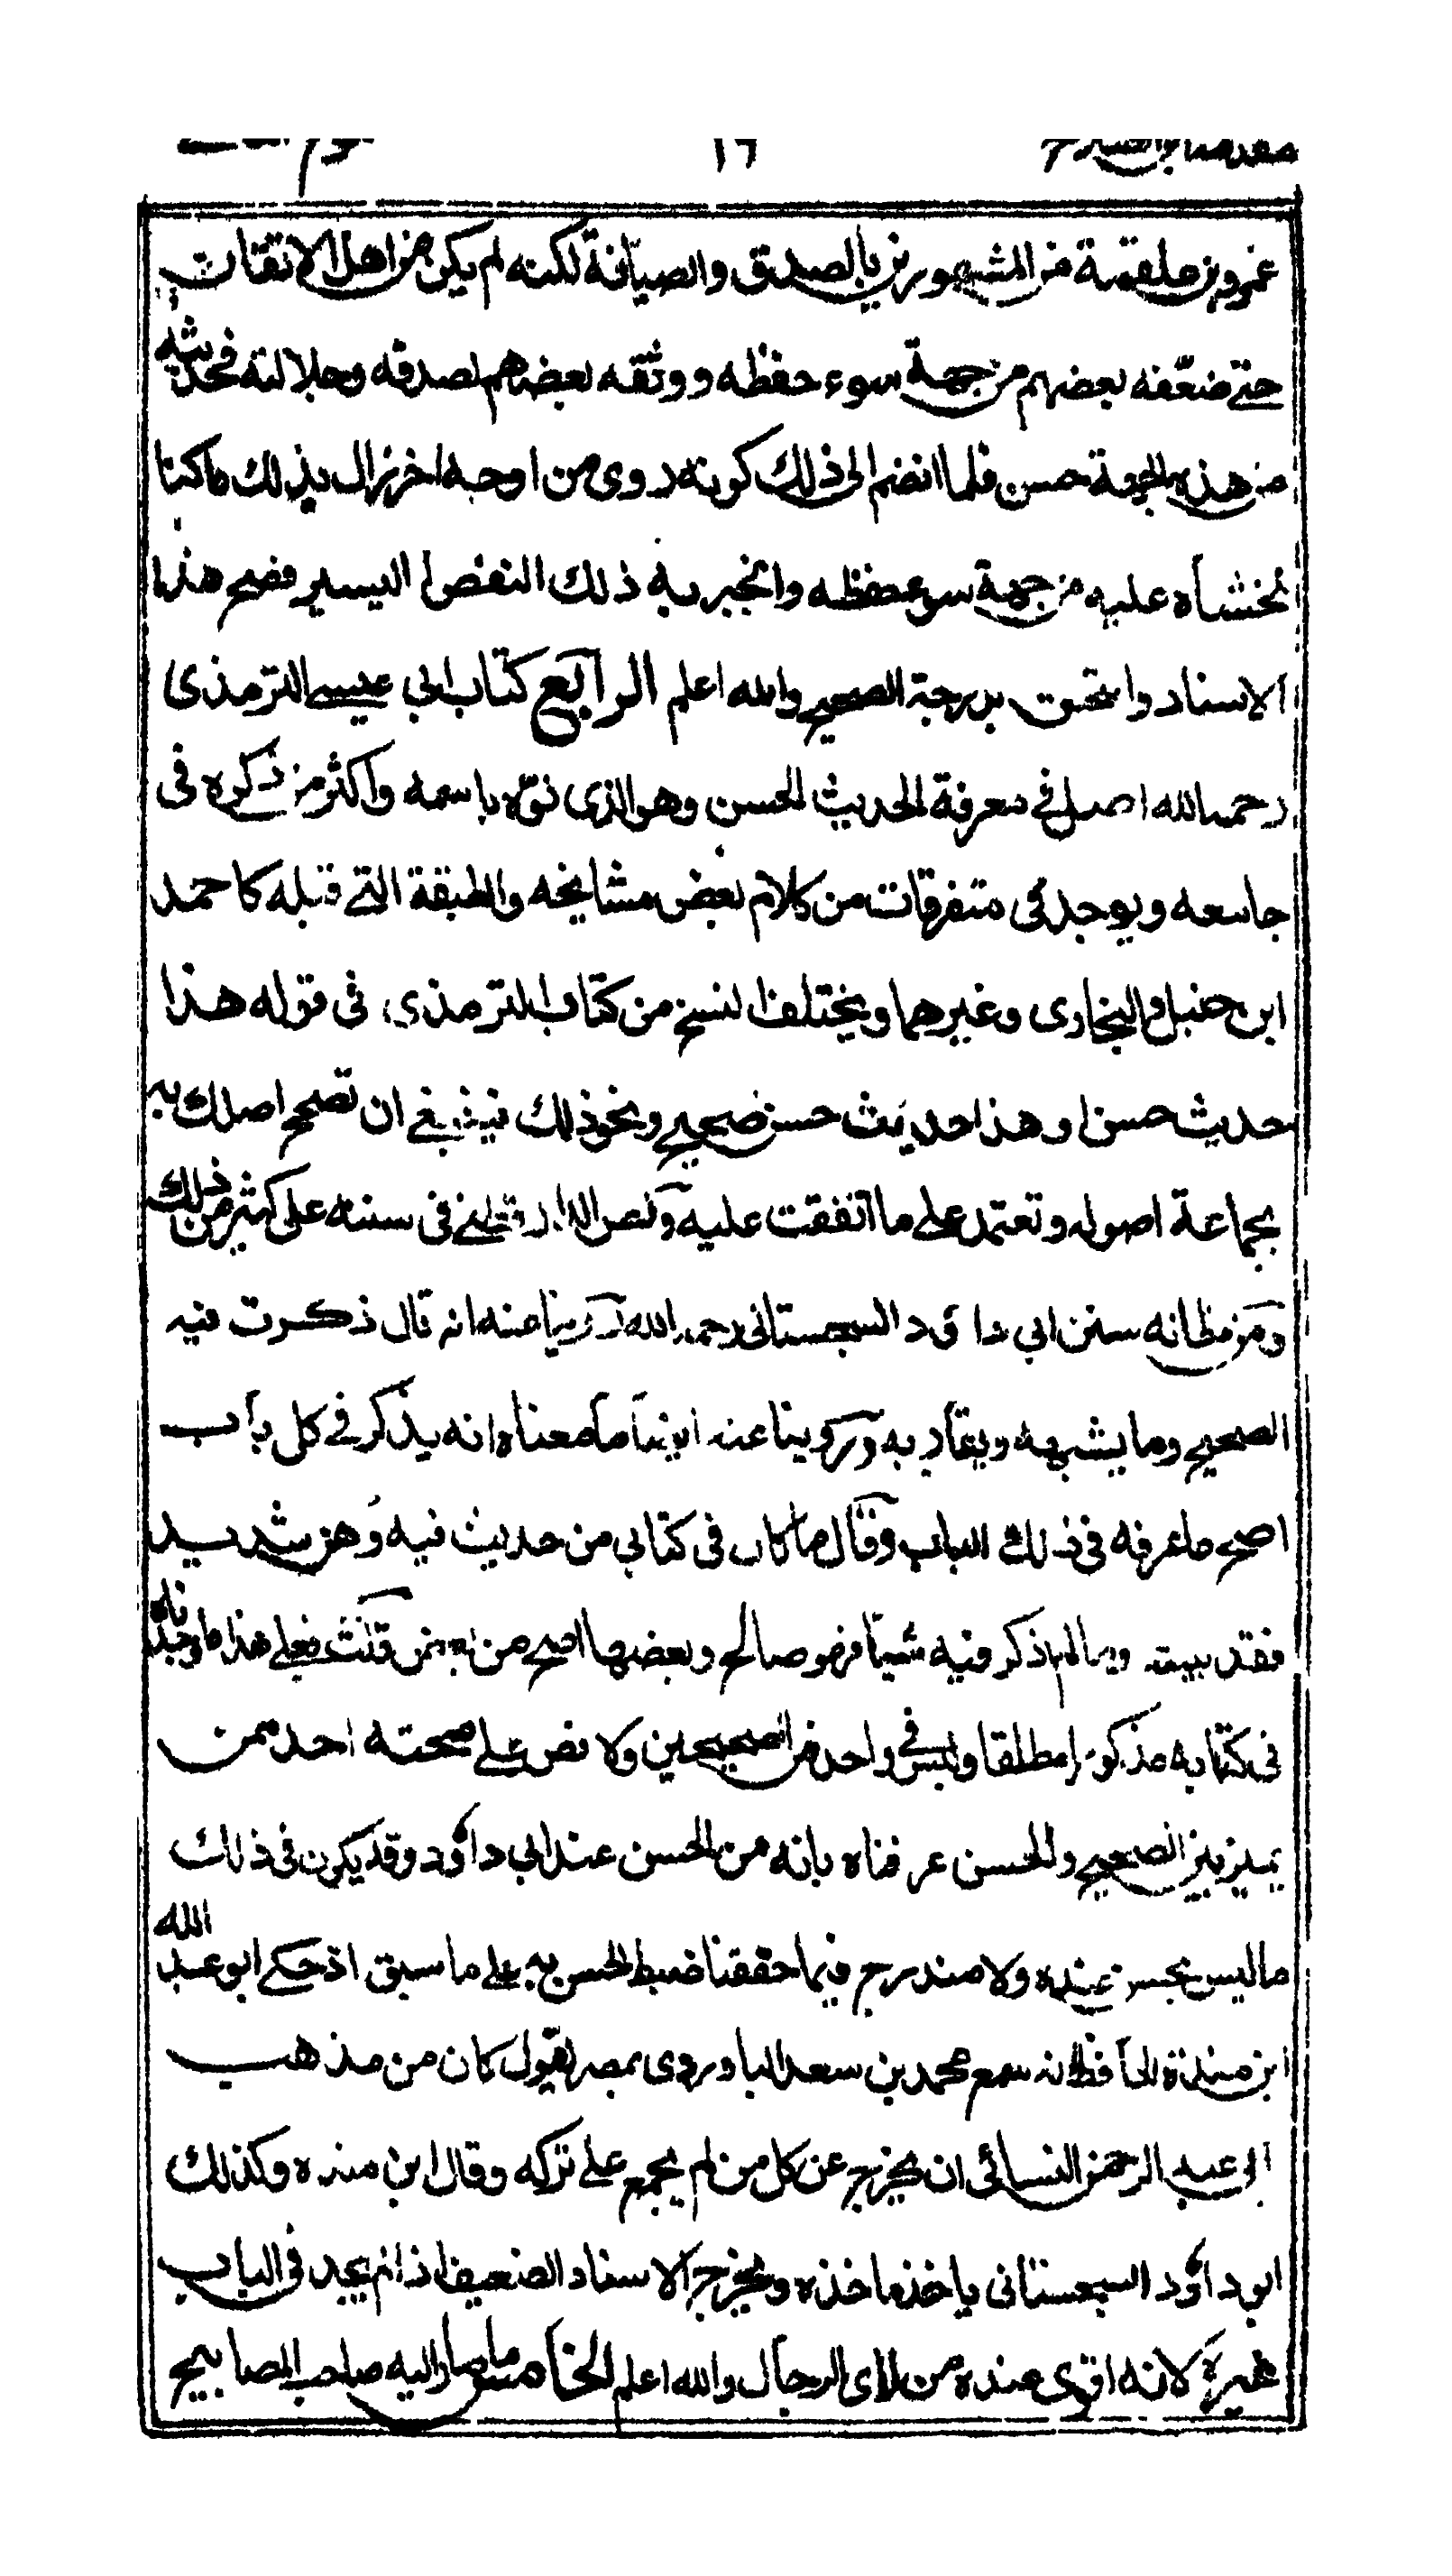 ١٦
عمرو بن علقمة من المشهورين بالصدق والصيانة لكنه لم يكن من اهل الاتقان
حتى ضعّفه بعضهم من جهة سوء حفظه ووثّقه بعضهم لصدقه وجلالته فحديثه
من هذه الجهة حسن فلما انضم الى ذلك كونه روى من اوجه اخر زال بذلك ما كنا
نخشاه عليه من جهة سوء حفظه وانجبر به ذلك النقص اليسير فصح هذا
الاسناد والتحق بدرجة الصحيح والله اعلم الرابع كتاب ابي عيسى الترمذى
رحمه الله اصل في معرفة الحديث الحسن وهو الذى نوّه باسمه واكثر من ذكره فى
جامعه ويوجد فى متفرقات من كلام بعض مشايخه والطبقة التي قبله كاحمد
ابن حنبل والبخارى وغيرهما ويختلف النسخ من كتاب الترمذى فى قوله هذا
حديث حسن او هذا حديث حسن صحيح ونحو ذلك فينبغي ان تصحح اصلك به
بجماعة اصول وتعتمد على ما اتفقت عليه ونص الدارقطني فى سننه على كثير من ذلك
ومن مظانه سنن ابي داؤد السجستانى رحمه الله روينا عنه انه قال ذكرت فيه
الصحيح وما يشبهه ويقاربه وروينا عنه ايضا ما معناه انه يذكر في كل باب
اصح ما عرفه في ذلك الباب وقال ما كان فى كتابي من حديث فيه وهن شديد
فقد بينته وما لم اذكر فيه شيئا فهو صالح وبعضها اصح من بعض قلت فعلى هذا ما وجدناه
فى كتابه مذكورا مطلقا وليس في واحد من الصحيحين ولا نص على صحته احد ممن
يميز بين الصحيح والحسن عرفناه بانه من الحسن عند ابي داؤد وقد يكون فى ذلك
ما ليس بحسن عنده ولا مندرج فيما حققنا ضبط الحسن به على ما سبق اذ حكى ابو عبد الله
ابن مندة الحافظ انه سمع محمد بن سعد الباوردى بمصر يقول كان من مذهب
ابي عبد الرحمن النسائى ان يخرج عن كل من لم يجمع على تركه وقال ابن منده وكذلك
ابو داؤد السجستانى ياخذ ماخذه ويخرج الاسناد الضعيف اذا لم يجد فى الباب
غيره لانه اقوى عنده من راى الرجال والله اعلم الخامس ما صار اليه صاحب المصابيح